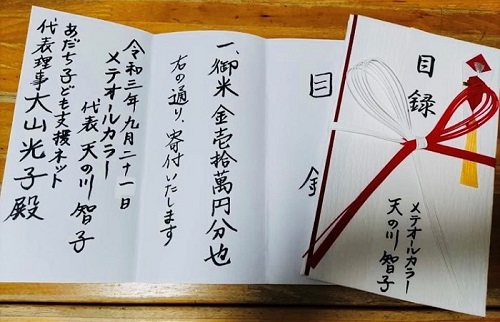 目録
一、御米 金壱拾萬円分也
右の通り、寄付いたします
令和三年九月二十一日
メテオールカラー
代表 天の川 智子
あだち子ども支援ネット
代表理事 大山光子 殿
目録
メテオールカラー
天の川 智子